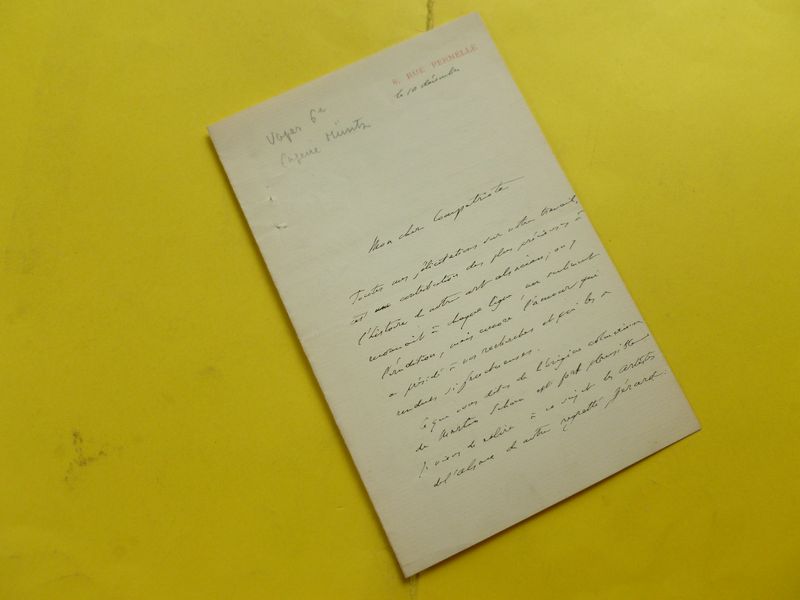 8, RUE PERNELLE
le 10 décembre
Voyer 6e
Eugène Müntz
Mon cher Compatriote
Toutes mes félicitations sur votre travail,
c'est une contribution des plus précieuses à
l'histoire de notre art alsacien; on y
reconnait à chaque ligne, non seulement
l'érudition, mais encore l'amour qui
a présidé à vos recherches et qui les a
rendues si fructueuses.
Ce que vous dites de l'origine
de Martin Schön est fort plausible
Je viens de relire à ce sujet les Artistes
de l'Alsace de notre regretté Gérard.